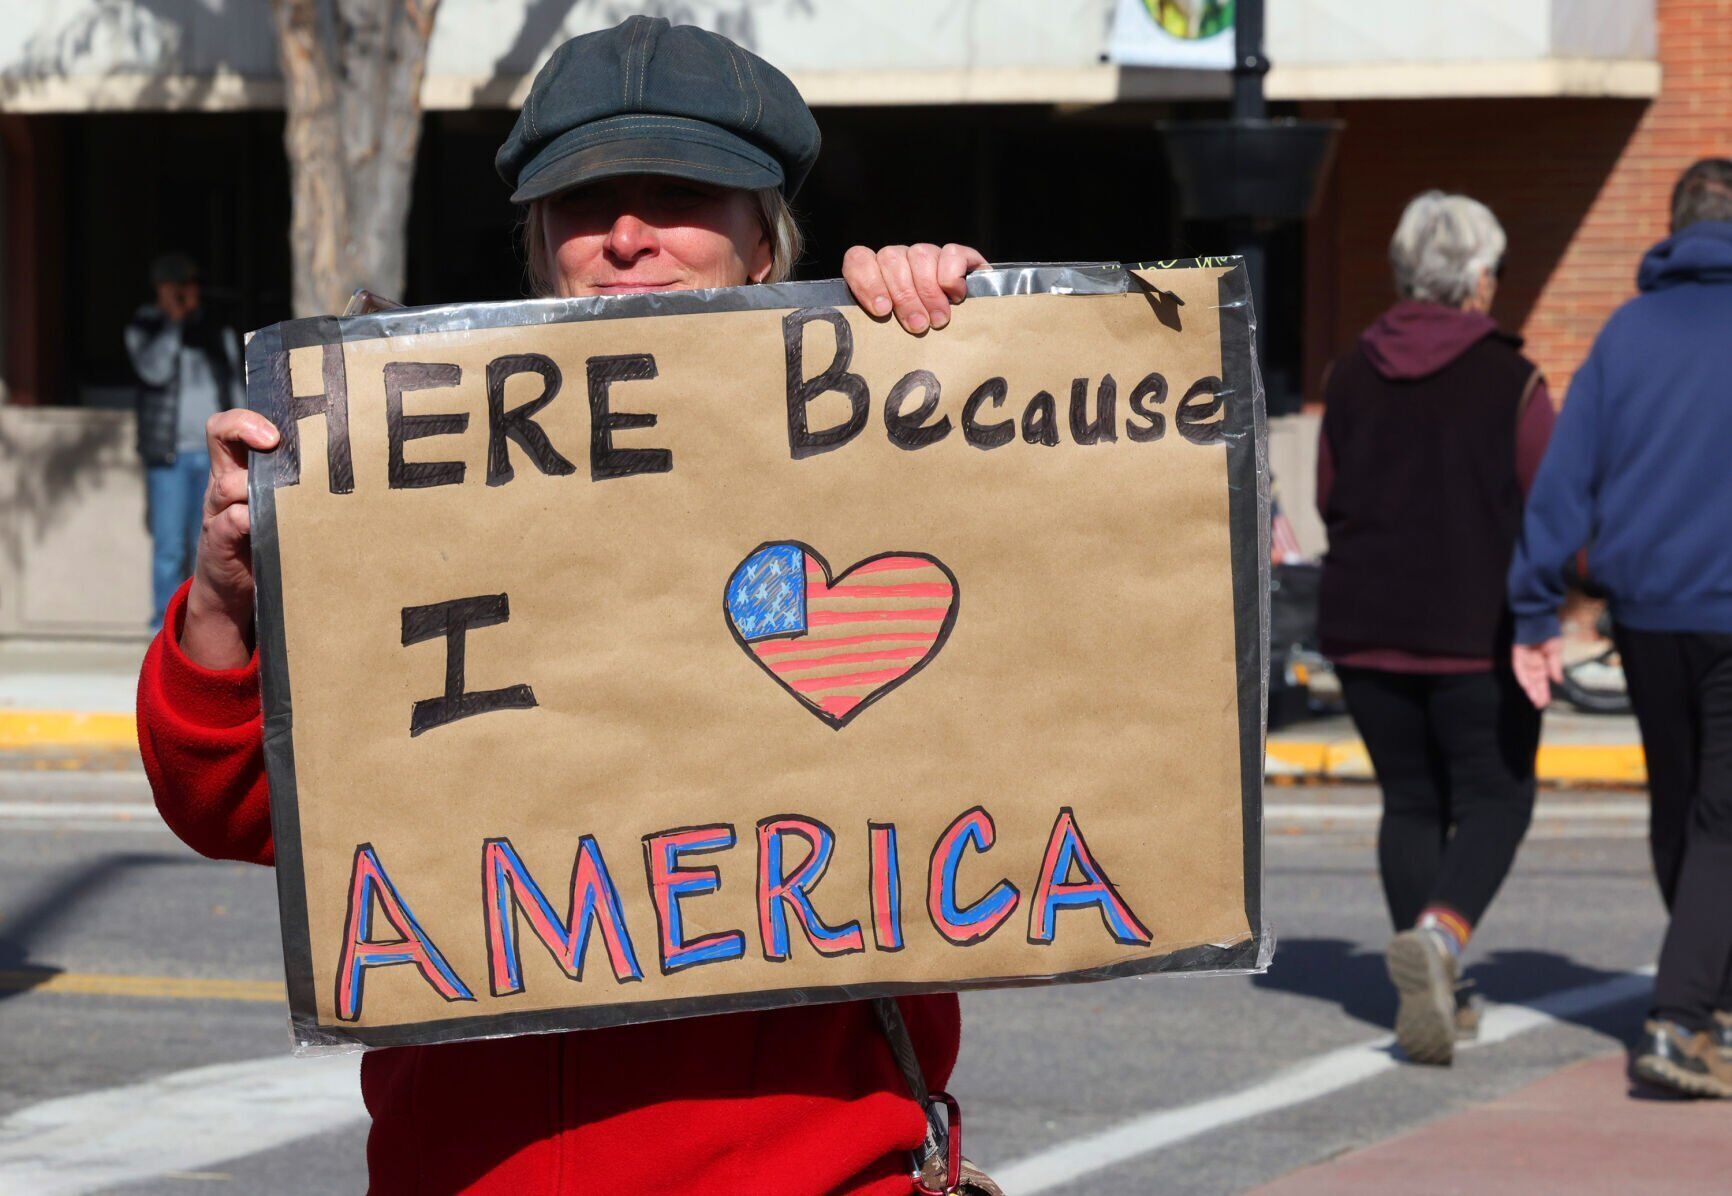 HERE Because
I
AMERICA